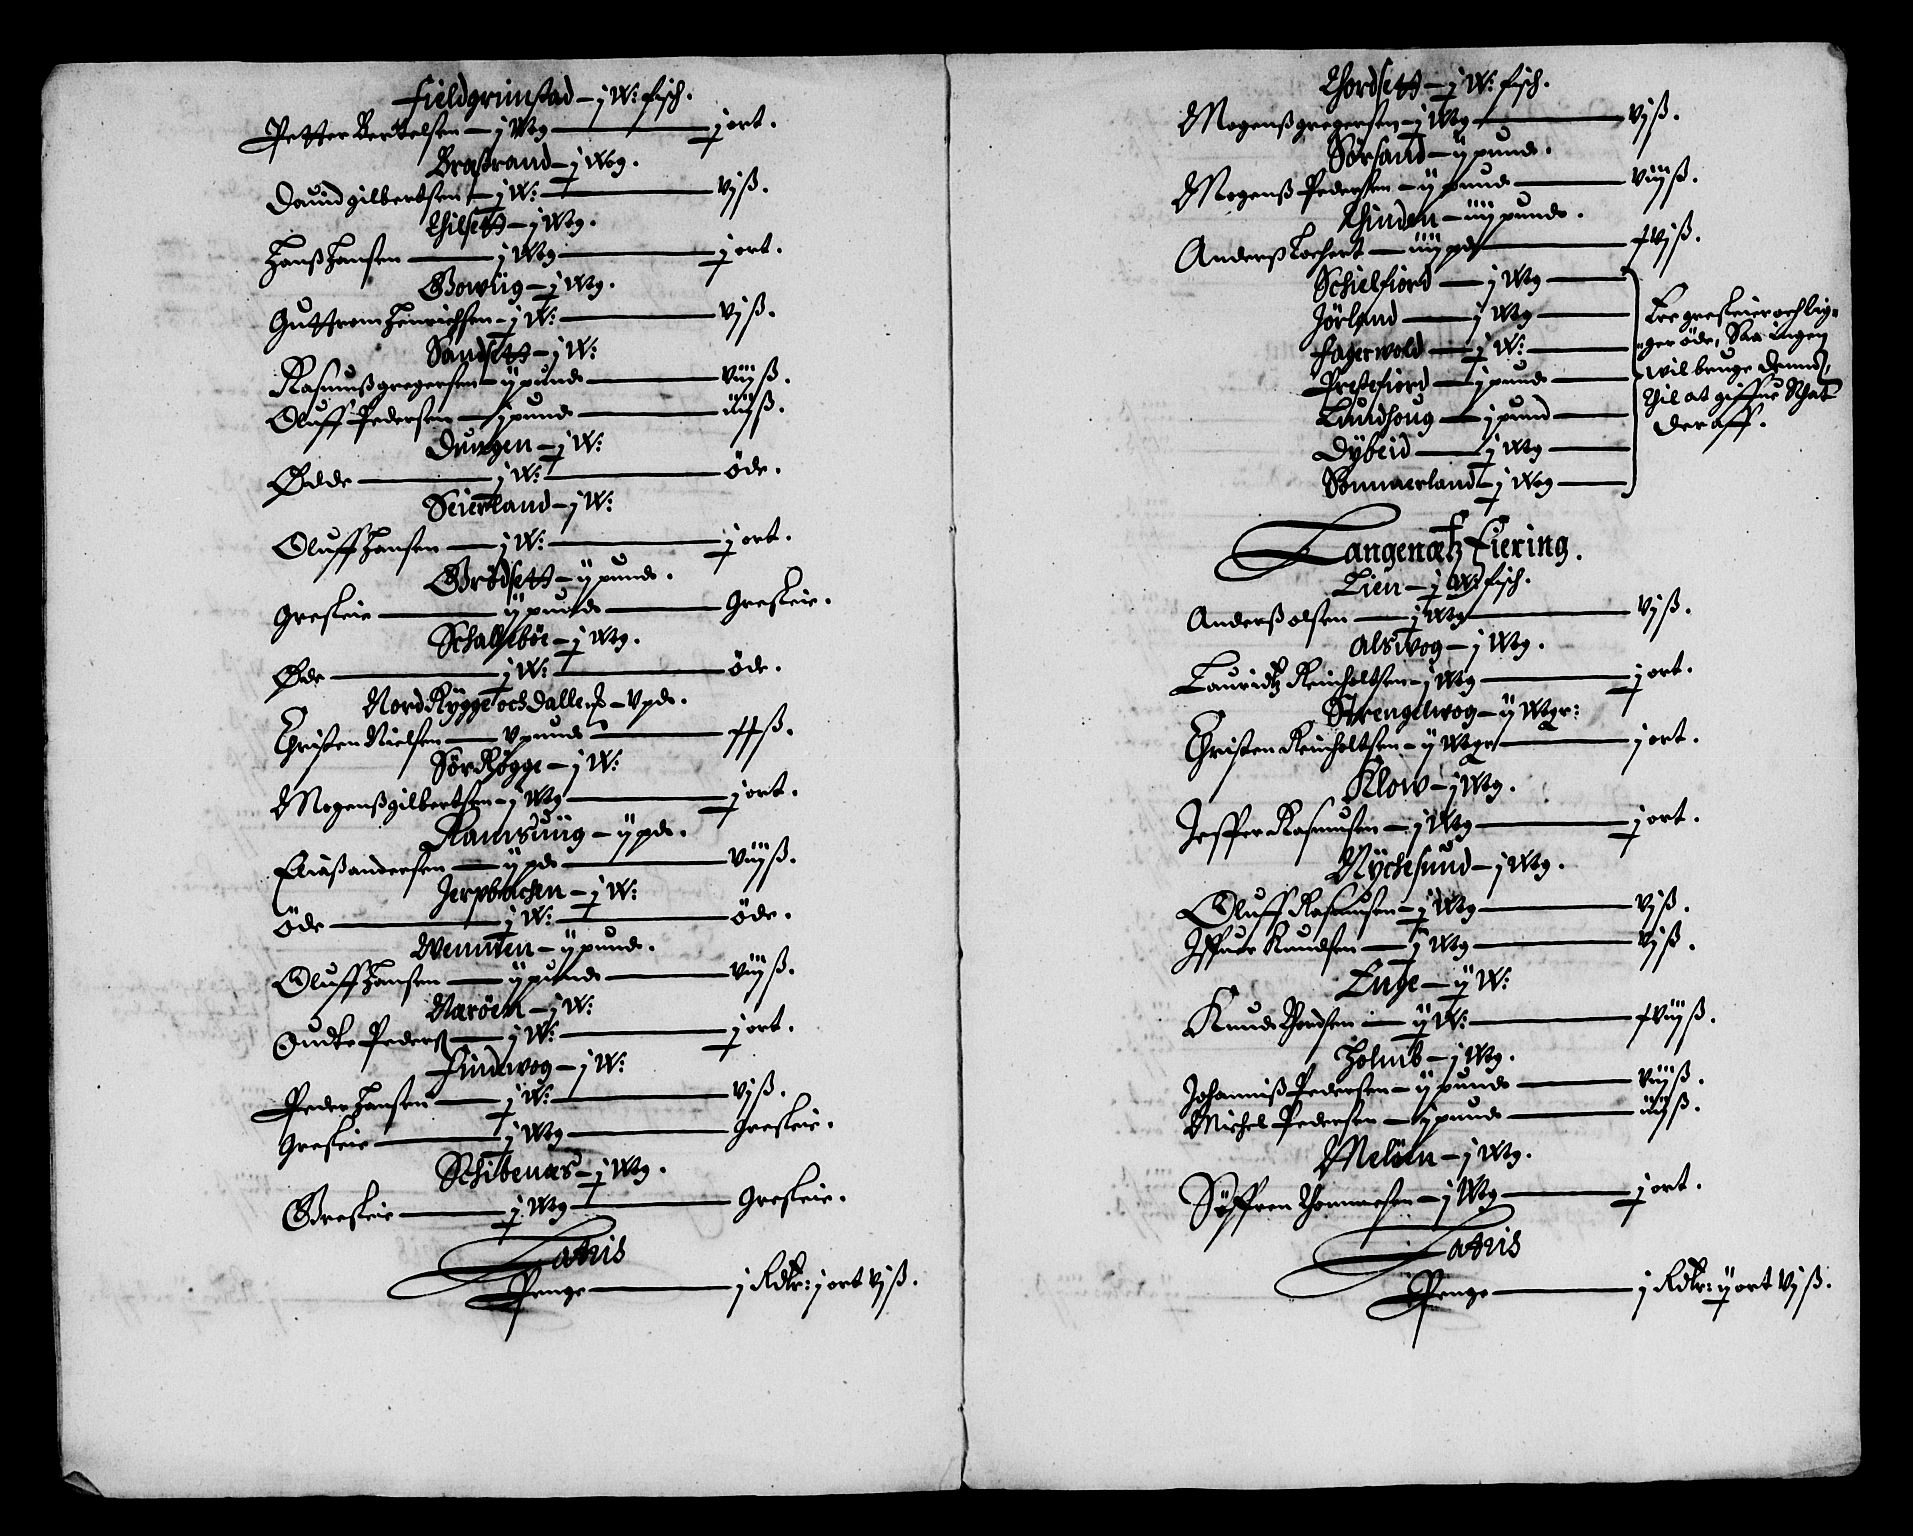 Fieldgrimstad – j W: fisch.
Petter Bertelsen – j Wog — j ort.
Brastrand – j Wog.
Dauid gilbertsen – j W: — vj ß.
Thilsett – j Wog.
Hanß Hansen — j Wog — j ort.
Gowiig – j Wog.
Guttrom Henrichsen – j W: — vj ß.
Sandsett – j W:
Rasmuß gregersen – ij punde — viij ß.
Oluff Pedersen — j punde — iiij ß.
Drüngen – j W:
Ødde — j W: — öde.
Seierland – j W:
Oluff Hansen — j W: — j ort.
Grödsett – ij punde.
Greskeie — ij punde — Greskeie.
Schallsböe – j Wog.
Øde — j W: — öde.
Nord Rygge och Dallens – v pde.
Christen Nielsen — v punde — xx ß.
Sör Rögge – j W:
Mogenß gilbertsen – j Wog — j ort.
Ramsuiig – ij pde.
Eliaß andersen — ij pde — viij ß.
Jerpbachen – j W:
öde — j W: — öde.
Wennien – ij punde.
Oluff Hansen — ij punde — viij ß.
Naröen – j W:
Peders — j W: — j ort.
Findwog – j W:
Peder Hansen — j W: — vj ß.
Greskeie — j Wog — Greskeie.
Schibenæs – j Wog.
Greskeie — j Wog — Greskeie.
Latris
Penge — j Rdlr: j ort vj ß.
Thordsett – j W: fisch.
Mogenß gregersen – j Wog — vj ß.
Sörsand – ij punde.
Mogenß Pedersen – ij punde — viij ß.
Thinden – iiij punde.
Anderß Tochert — iiij pde — xvj ß.
Schielfiord — j Wog
Jörland — j Wog
Fagerwold — j W:
Prestefiord — j punde
Lundhoug — j pund
Dybeid — j Wog
Sonnaerland – j Wog
Ere greskeier och lig-
ger öde, Saa ingen
wil bruge dennd,
Thil at giffue Schat
deraff.
Langenætz Fiering.
Lien – j W: fisch.
Anderß olsen — j Wog — vj ß.
Alswog – j Wog.
Lauridtz Reinholtsen – j Wog — j ort.
Strengelwog – ij Wogr:
Christen Reinholtsen – ij Wogr — j ort.
Klow – j Wog.
Jesper Rasmusen – j Wog — j ort.
Nychesund – j Wog.
Oluff Rasmusen – j Wog — vj ß.
Iffuer Knudsen — j Wog — vj ß.
Enge – ij W:
Knud Thordsen — ij W: — xviij ß.
Holmb – j Wog.
Johanniß Pedersen – ij punde — viij ß.
Michel Pedersen — j punde — iiij ß.
Melöen – j Wog.
Söffren Thommesen – j Wog — j ort.
Latris
Penge — j Rdlr: ij ort vj ß.